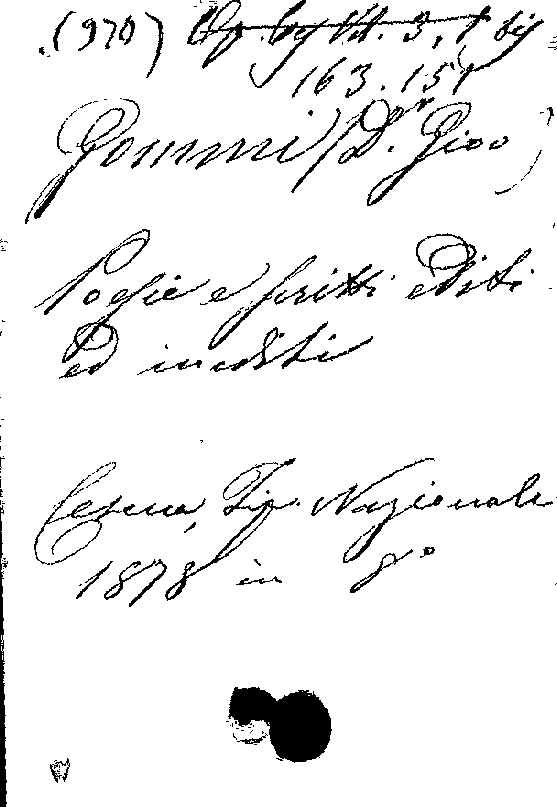 (970) Op. by Vt. 3, 1 bis
163.151
Gommi (Dr. Gioo)
Poesie e scritti editi
ed inediti
Cesena, Tip. Nazionale
1878 in 8°